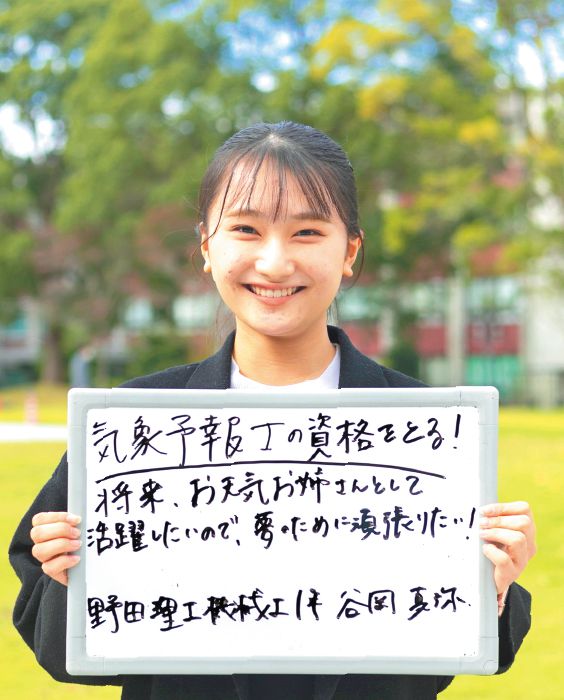 気象予報士の資格をとる!
将来、お天気お姉さんとして
活躍したいので、夢のために頑張りたい!
野田理工機械工1年 谷岡 真弥